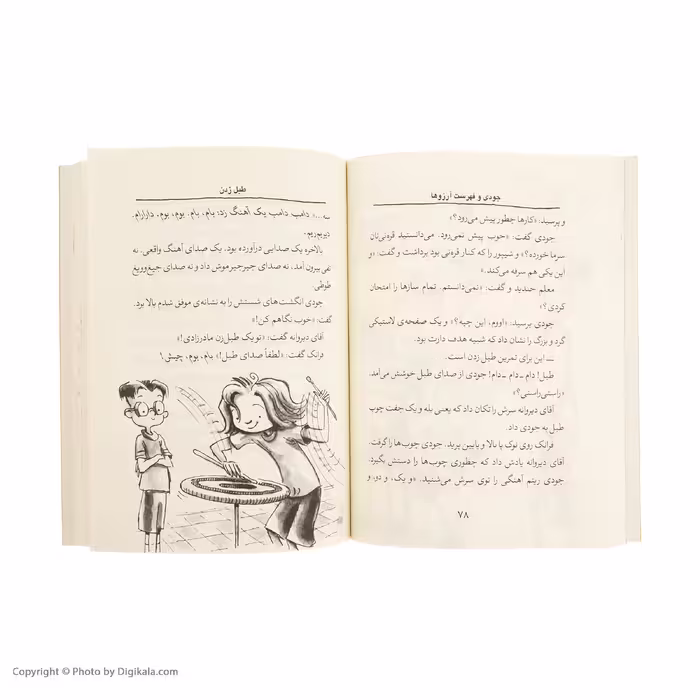 جودی و فهرست آرزوها
و پرسید: «کارها چطور پیش می‌رود؟»
جودی گفت: «خوب پیش نمی‌رود. می‌دانستید قره‌نی‌تان
سرما خورده؟» و شیپور را که کنار قره‌نی بود برداشت و گفت: «و
این یکی هم سرفه می‌کند.»
معلم خندید و گفت: «نمی‌دانستم. تمام سازها را امتحان
کردی؟»
جودی پرسید: «اووم، این چیه؟» و یک صفحه‌ی لاستیکی
گرد و بزرگ را نشان داد که شبیه هدف دارت بود.
ـــ این برای تمرین طبل زدن است.
طبل! دام ـ دام ـ دام! جودی از صدای طبل خوشش می‌آمد.
«راستی‌راستی؟»
آقای دیروانه سرش را تکان داد که یعنی بله و یک جفت چوب
طبل به جودی داد.
فرانک روی نوک پا بالا و پایین پرید. جودی چوب‌ها را گرفت.
آقای دیروانه یادش داد که چطوری چوب‌ها را دستش بگیرد.
جودی ریتم آهنگی را توی سرش می‌شنید. «و یک، و دو، و
۷۸
طبل زدن
سه...» دامب دامب یک آهنگ زد؛ بام، بام، بوم، بوم، دارارام.
دیریم‌ریم.
بالاخره یک صدایی درآورده بود. یک صدای آهنگ واقعی. نه
تفی بیرون آمد، نه صدای جیرجیر موش داد و نه صدای جیغ‌وویغ
طوطی.
جودی انگشت‌های شستش را به نشانه‌ی موفق شدم بالا برد.
گفت: «خوب نگاهم کن!»
آقای دیروانه گفت: «تو یک طبل‌زن مادرزادی!»
فرانک گفت: «لطفاً صدای طبل! بام، بوم، چیش!
Copyright © Photo by Digikala.com